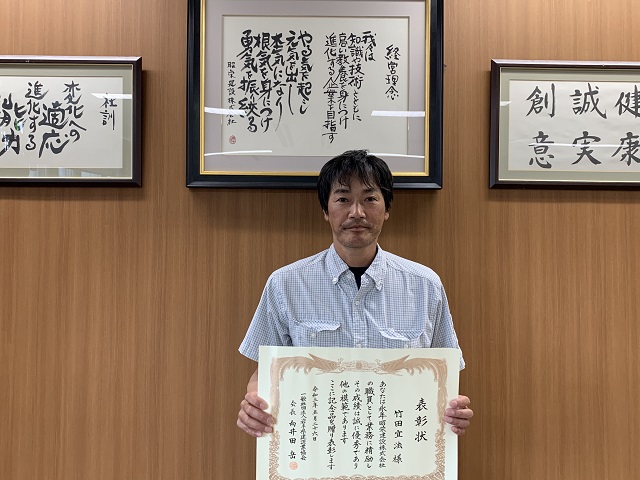 社訓
変化への
適応
進化する
能力
経営理念
我々は
知識や技術とともに
高い教養を身につけ
進化する企業を目指す
やる気を起こし
元気を出し
本気になり
根気を身につけ
勇気を振へる
昭栄建設株式会社
健康
誠実
創意
表彰状
竹田宜法 様
あなたは永年昭栄建設株式会社
の職員として業務に精励し
その成績は誠に優秀であり
他の模範であります
ここに記念品を贈り表彰します
令和三年五月二十六日
一般社団法人岩手県建設業協会
会長 向井田 岳